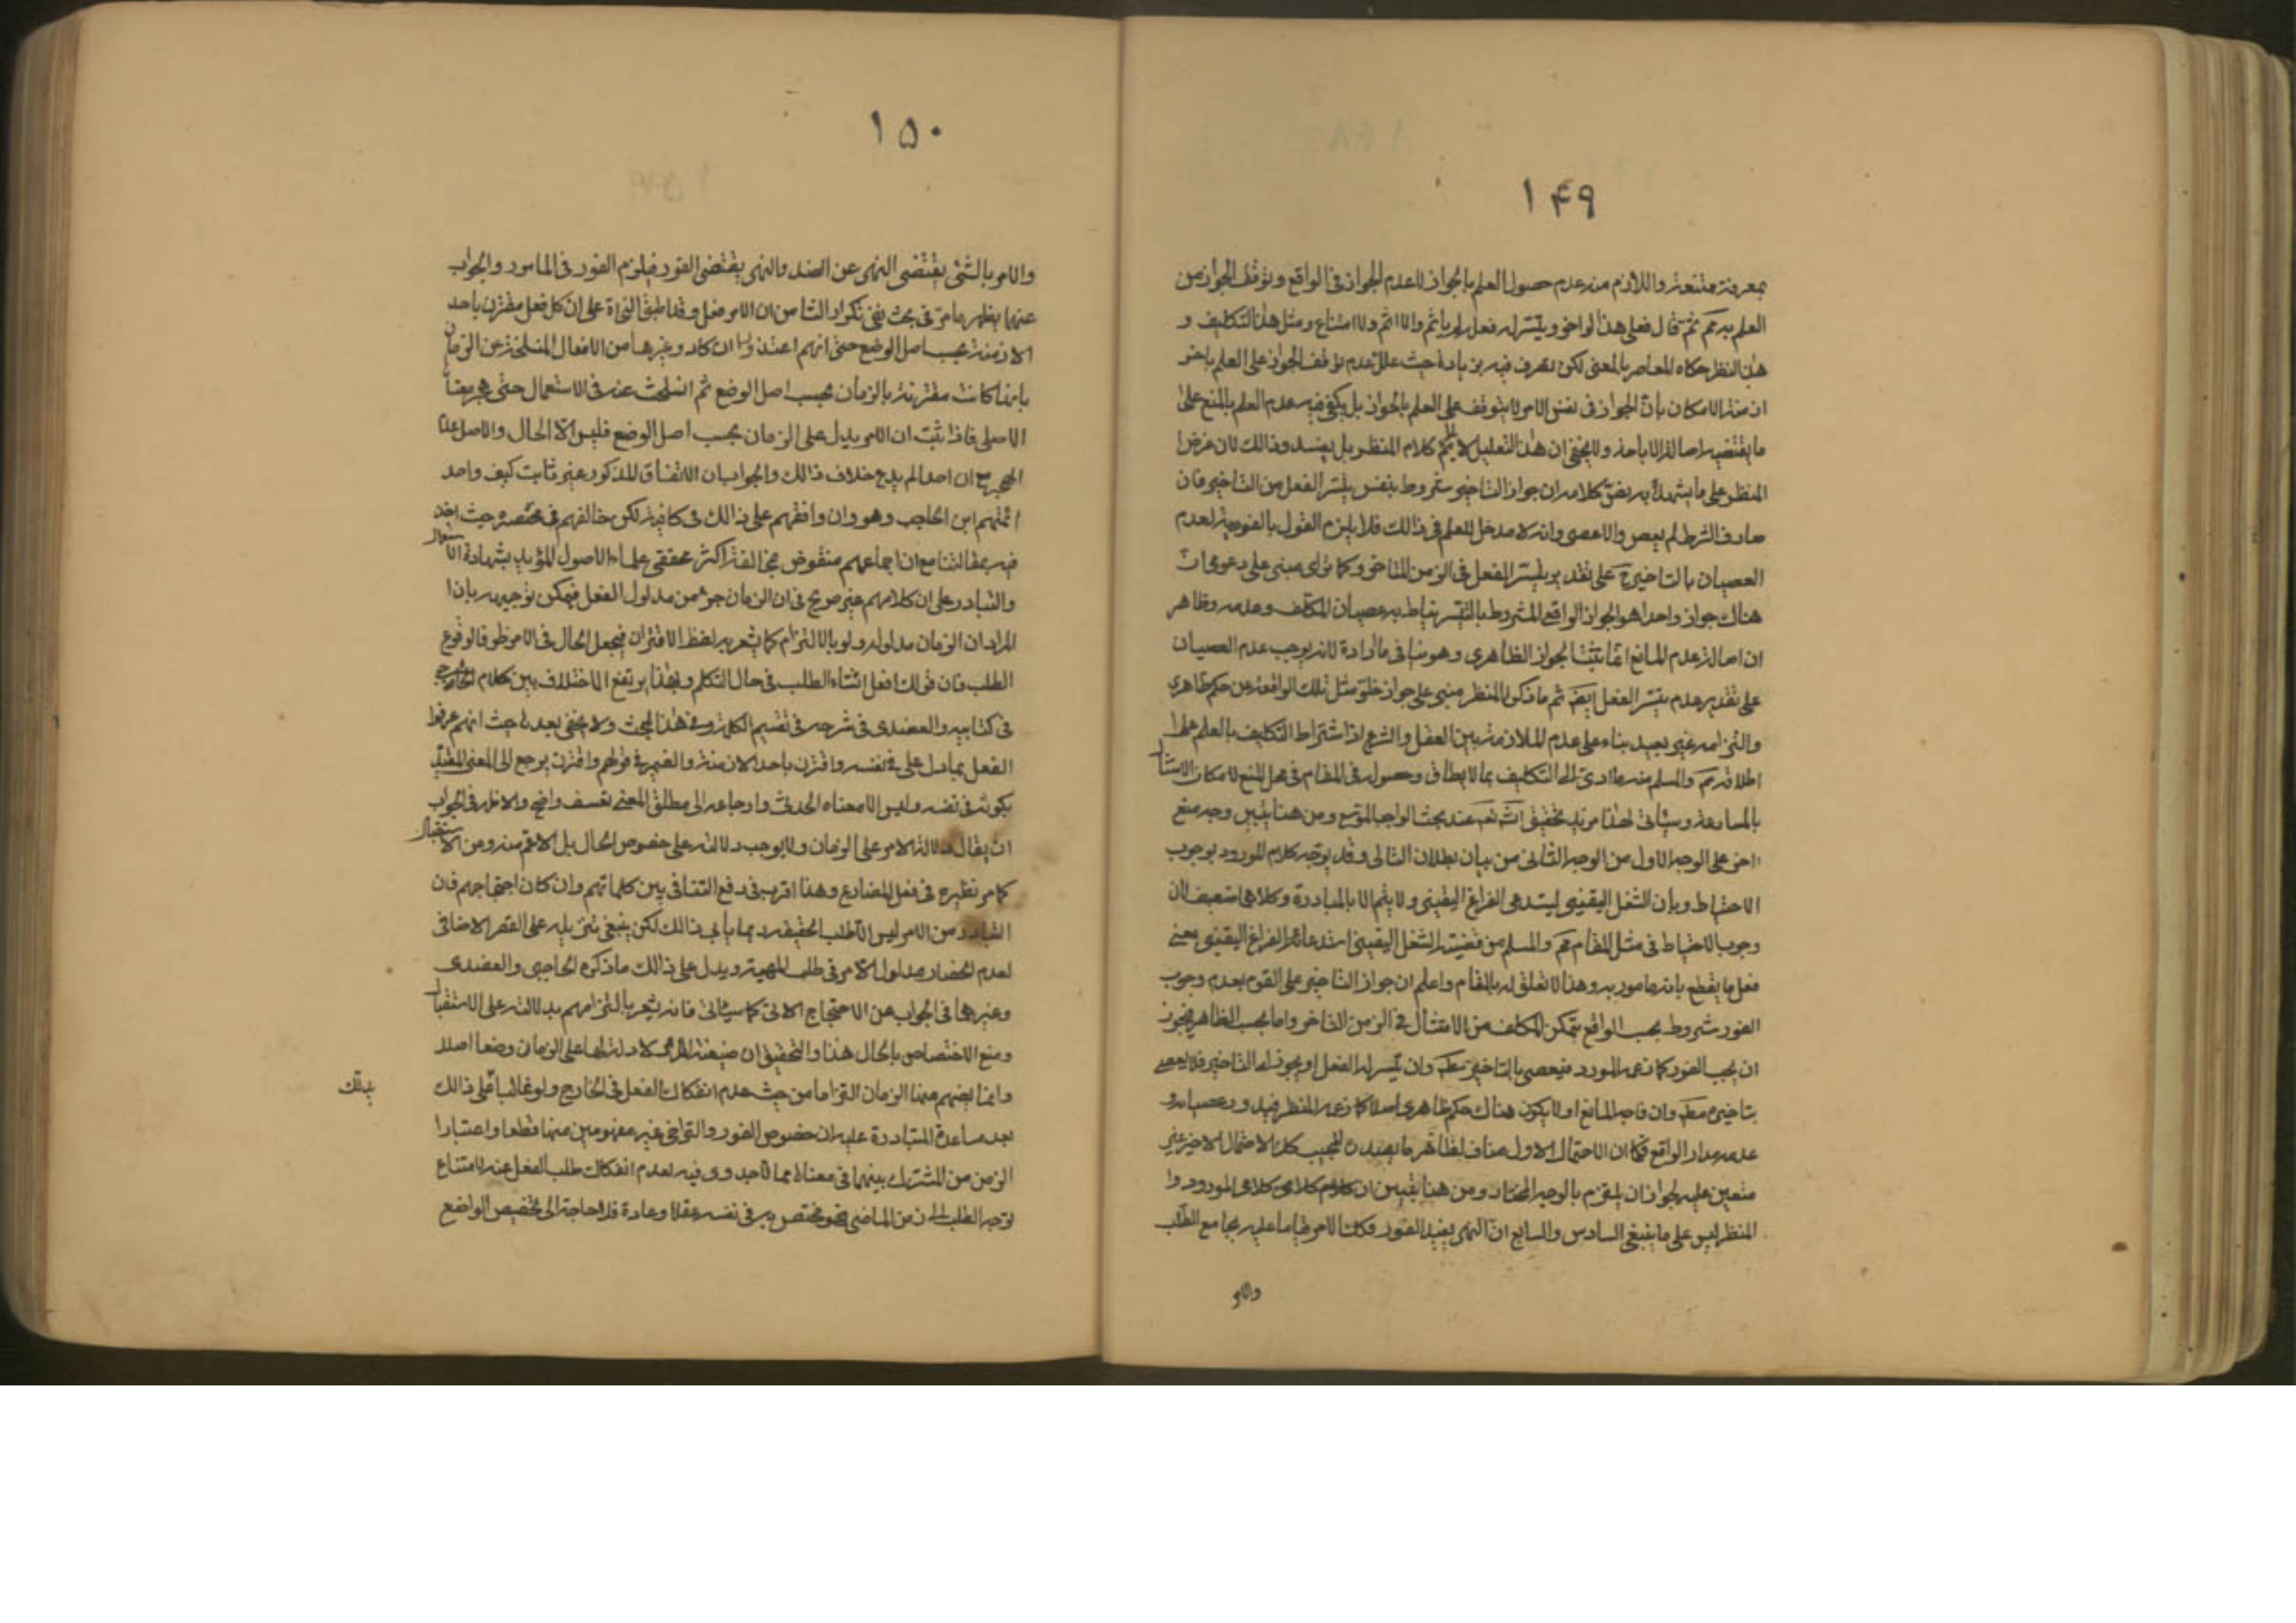 ١۴٩
بمعرفته ممتنعة واللازم منه عدم حصول العلم بالجواز لا عدم الجواز في الواقع وتوقف الجواز من
العلم به مم ثم قال فعلى هذا لو اخر ويتسر له فعله لم ياثم والا اثم ولا امتناع ومثل هذا التكليف و
هذا النظر حكاه المعاصر بالمعنى لكن تصرف فيه بزيادة حيث علل عدم توقف الجواز على العلم باخر
ازمنة الامكان بان الجواز في نفس الامر لا يتوقف على العلم بالجواز بل يكفي فيه عدم العلم بالمنع على
ما يقتضيه اصالة الاباحة ولا يخفى ان هذا التعليل لا يتم كلام المنظر بل يفسده وذلك لان غرض
المنظر على ما يشهد به نص كلامه ان جواز التاخير مشروط بنفس تيسر الفعل من التاخير فان
صادف الشرط لم يعص والا عصى وانه لا مدخل للعلم في ذالك فلا يلزم القول بالفورية لعدم
العصيان بالتاخير ح على تقدير تيسر الفعل في الزمن المتاخر وكما ترى مبني على دعوى ان
هناك جواز واحدا هو الجواز الواقعي المشروط بالتيسر يناط به عصيان المكلف وعدمه وظاهر
ان اصالة عدم المانع انما يثبت الجواز الظاهري وهو ينافي ما اراده لانه يوجب عدم العصيان
على تقدير عدم تيسر الفعل ايضا ثم ما ذكره المنظر مبني على جواز خلو مثل تلك الواقعة عن حكم ظاهري
والتزامه غير بعيد بناء على عدم الملازمة بين العقل والشرع اذ اشتراط التكليف بالعلم على
اطلاقه مم والمسلم منه ما ادى الى التكليف بما لا يطاق وحصوله في المقام في محل المنع لامكان الامتثال
بالمسارعة وسياتي لهذا مزيد تحقيق انش تعم عند بحث الواجب الموسع ومن هنا يتبين وجه منع
اخر على الوجه الاول من الوجه الثاني من بيان بطلان التالي وقد يوجه كلام المورد بوجوب
الاحتياط وبان الشغل اليقيني يستدعي الفراغ اليقيني ولا يتم الا بالمبادرة وكلاهما ضعيف لان
وجوب الاحتياط في مثل المقام مم والمسلم من قضية الشغل اليقيني استدعائه الفراغ اليقيني بمعنى
فعل ما يقطع بانه مامور به وهذا لا تعلق له بالمقام واعلم ان جواز التاخير على القوم بعدم وجوب
الفور مشروط بحسب الواقع بتمكن المكلف من الامتثال في الزمن المتاخر واما بحسب الظاهر فيجوز
ان يجب الفور كما زعمه المورد فيعصى بالتاخير مط وان تيسر له الفعل او يجوز له التاخير فلا يعصى
بتاخيره مط وان فاجاه المانع او لا يكون هناك حكم ظاهري اصلا كما زعمه المنظر فيدور عصيانه و
عدمه مدار الواقع فكما ان الاحتمال الاول مناف لظاهر ما بصدده المجيب كك الاحتمال الاخير غير
متعين عليه لجواز ان يلتزم بالوجه المختار ومن هنا يتبين ان كلام كلا من كلامي المورد وا
المنظر ليس على ما ينبغي السادس والسابع ان النهي يفيد الفور فكذا الامر قياسا عليه بجامع الطلب
والامر
١۵٠
والامر بالشئ يقتضي النهي عن الضد والنهي يقتضي الفور فيلزم الفور في المامور والجواب
عنهما يظهر ما مر في بحث نفي تكرار الثامن ان الامر فعل وقد اطبق النحاة على ان كل فعل مقترن باحد
الازمنة بحسب اصل الوضع حتى انهم اعتذروا ان كاد وغيرها من الافعال المنسلخة عن الزمان
بانها كانت مقترنة بالزمان بحسب اصل الوضع ثم انسلخت عنه في الاستعمال حتى هجر معناه
الاصلي فاذا ثبت ان الامر يدل على الزمان بحسب اصل الوضع فليس الا الحال والاصل عدم
الهجر مع ان احدا لم يدع خلاف ذالك والجواب ان الاتفاق المذكور غير ثابت كيف واحد
ائمتهم ابن الحاجب وهو وان وافقهم على ذالك في كافيته لكن خالفهم في مختصره حيث اخذ
فيه بمقالتنا مع ان اجماعهم منقوض بمخالفة اكثر محققي علماء الاصول المؤيد بشهادة الاستعمال
والتبادر على ان كلامهم غير صريح في ان الزمان جزء من مدلول الفعل فيمكن توجيهه بان ا
المراد ان الزمان مدلوله ولو بالالتزام كما يشعر به لفظ الاقتران فيجعل الحال في الامر ظرفا لوقوع
الطلب فان قولك افعل انشاء الطلب في حال التكلم وبهذا يرتفع الاختلاف بين كلام الحاجبي
في كتابيه والعضدي في شرحه في تقسيم الكلمة وفي هذا المبحث ولا يخفى بعده حيث انهم عرفوا
الفعل بما دل على في نفسه واقترن باحد الازمنة والضمير في قولهم واقترن يرجع الى المعنى المقيد
بكونه في نفسه وليس الا معناه الحدثي وارجاعه الى مطلق المعنى تعسف واضح والاظهر في الجواب
ان يقال دلالة الامر على الزمان ولا يوجب دلالته على خصوص الحال بل الاعم منه ومن الاستقبال
كما مر نظيره في فعل المضارع وهذا اقرب في دفع التنافي بين كلماتهم وان كان احتجاجهم فان
التبادر من الامر ليس الا طلب الحقيقة ربما يأبى ذالك لكن ينبغي تنزيله على القصر الاضافي
لعدم انحصار مدلول الامر في طلب المهية ويدل على ذالك ما ذكره الحاجبي والعضدي
وغيرهما في الجواب عن الاحتجاج الاتي كما سياتي فانه يشعر بالتزامهم بدلالته على الاستقبال
ومنع الاختصاص بالحال هذا والتحقيق ان صيغة الامر لا دلالة لها على الزمان وضعا اصلا
وانما يفهم منها الزمان التزاما من حيث عدم انفكاك الفعل في الخارج ولو غالبا على ذالك
بعد مساعدة المتبادرة عليه ان خصوص الفور والتراخي غير مفهومين منها قطعا واعتبار ا
الزمن من المشترك بينهما في معناه مما لا جدوى فيه لعدم انفكاك طلب الفعل عنه لامتناع
توجه الطلب الى زمن الماضي فهو مختص به في نفسه عقلا وعادة فلا حاجة الى تخصيص الواضع